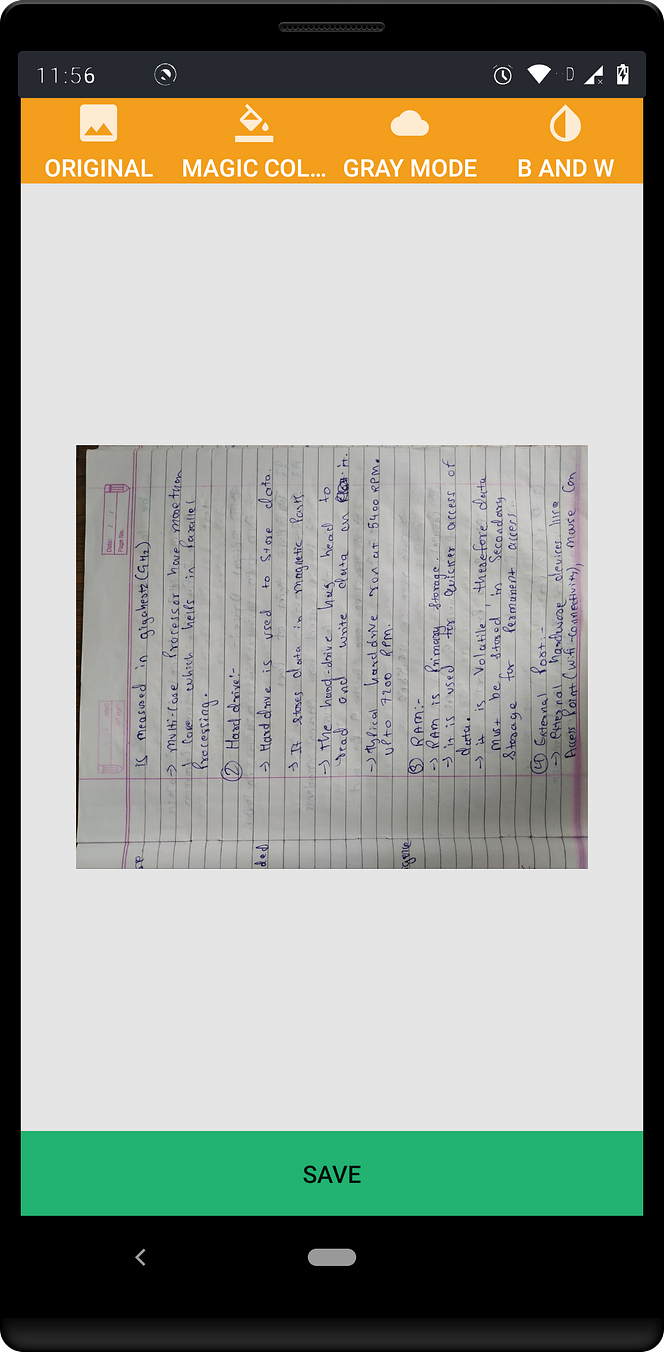 11:56
ORIGINAL
MAGIC COL...
GRAY MODE
B AND W
Date: / /
Page No.
is measured in gigahertz (GHz)
→ multi-core processor have more than
1 core which helps in parallel
Processing.
② Hard drive:-
→ Hard drive is used to store data.
→ It stores data in magnetic part
→ The hard-drive has head to
read and write data on it.
→ Typical harddrive run at 5400 RPM.
upto 7200 RPM.
③ RAM:-
→ RAM is Primary storage.
→ it is used for quicker access of
data.
→ it is volatile, therefore data
must be stored in Secondary
storage for Permanent access.
④ External Port:-
→ External hardware devices like
Access Point (wifi-connectivity), mouse Can
ded
SAVE